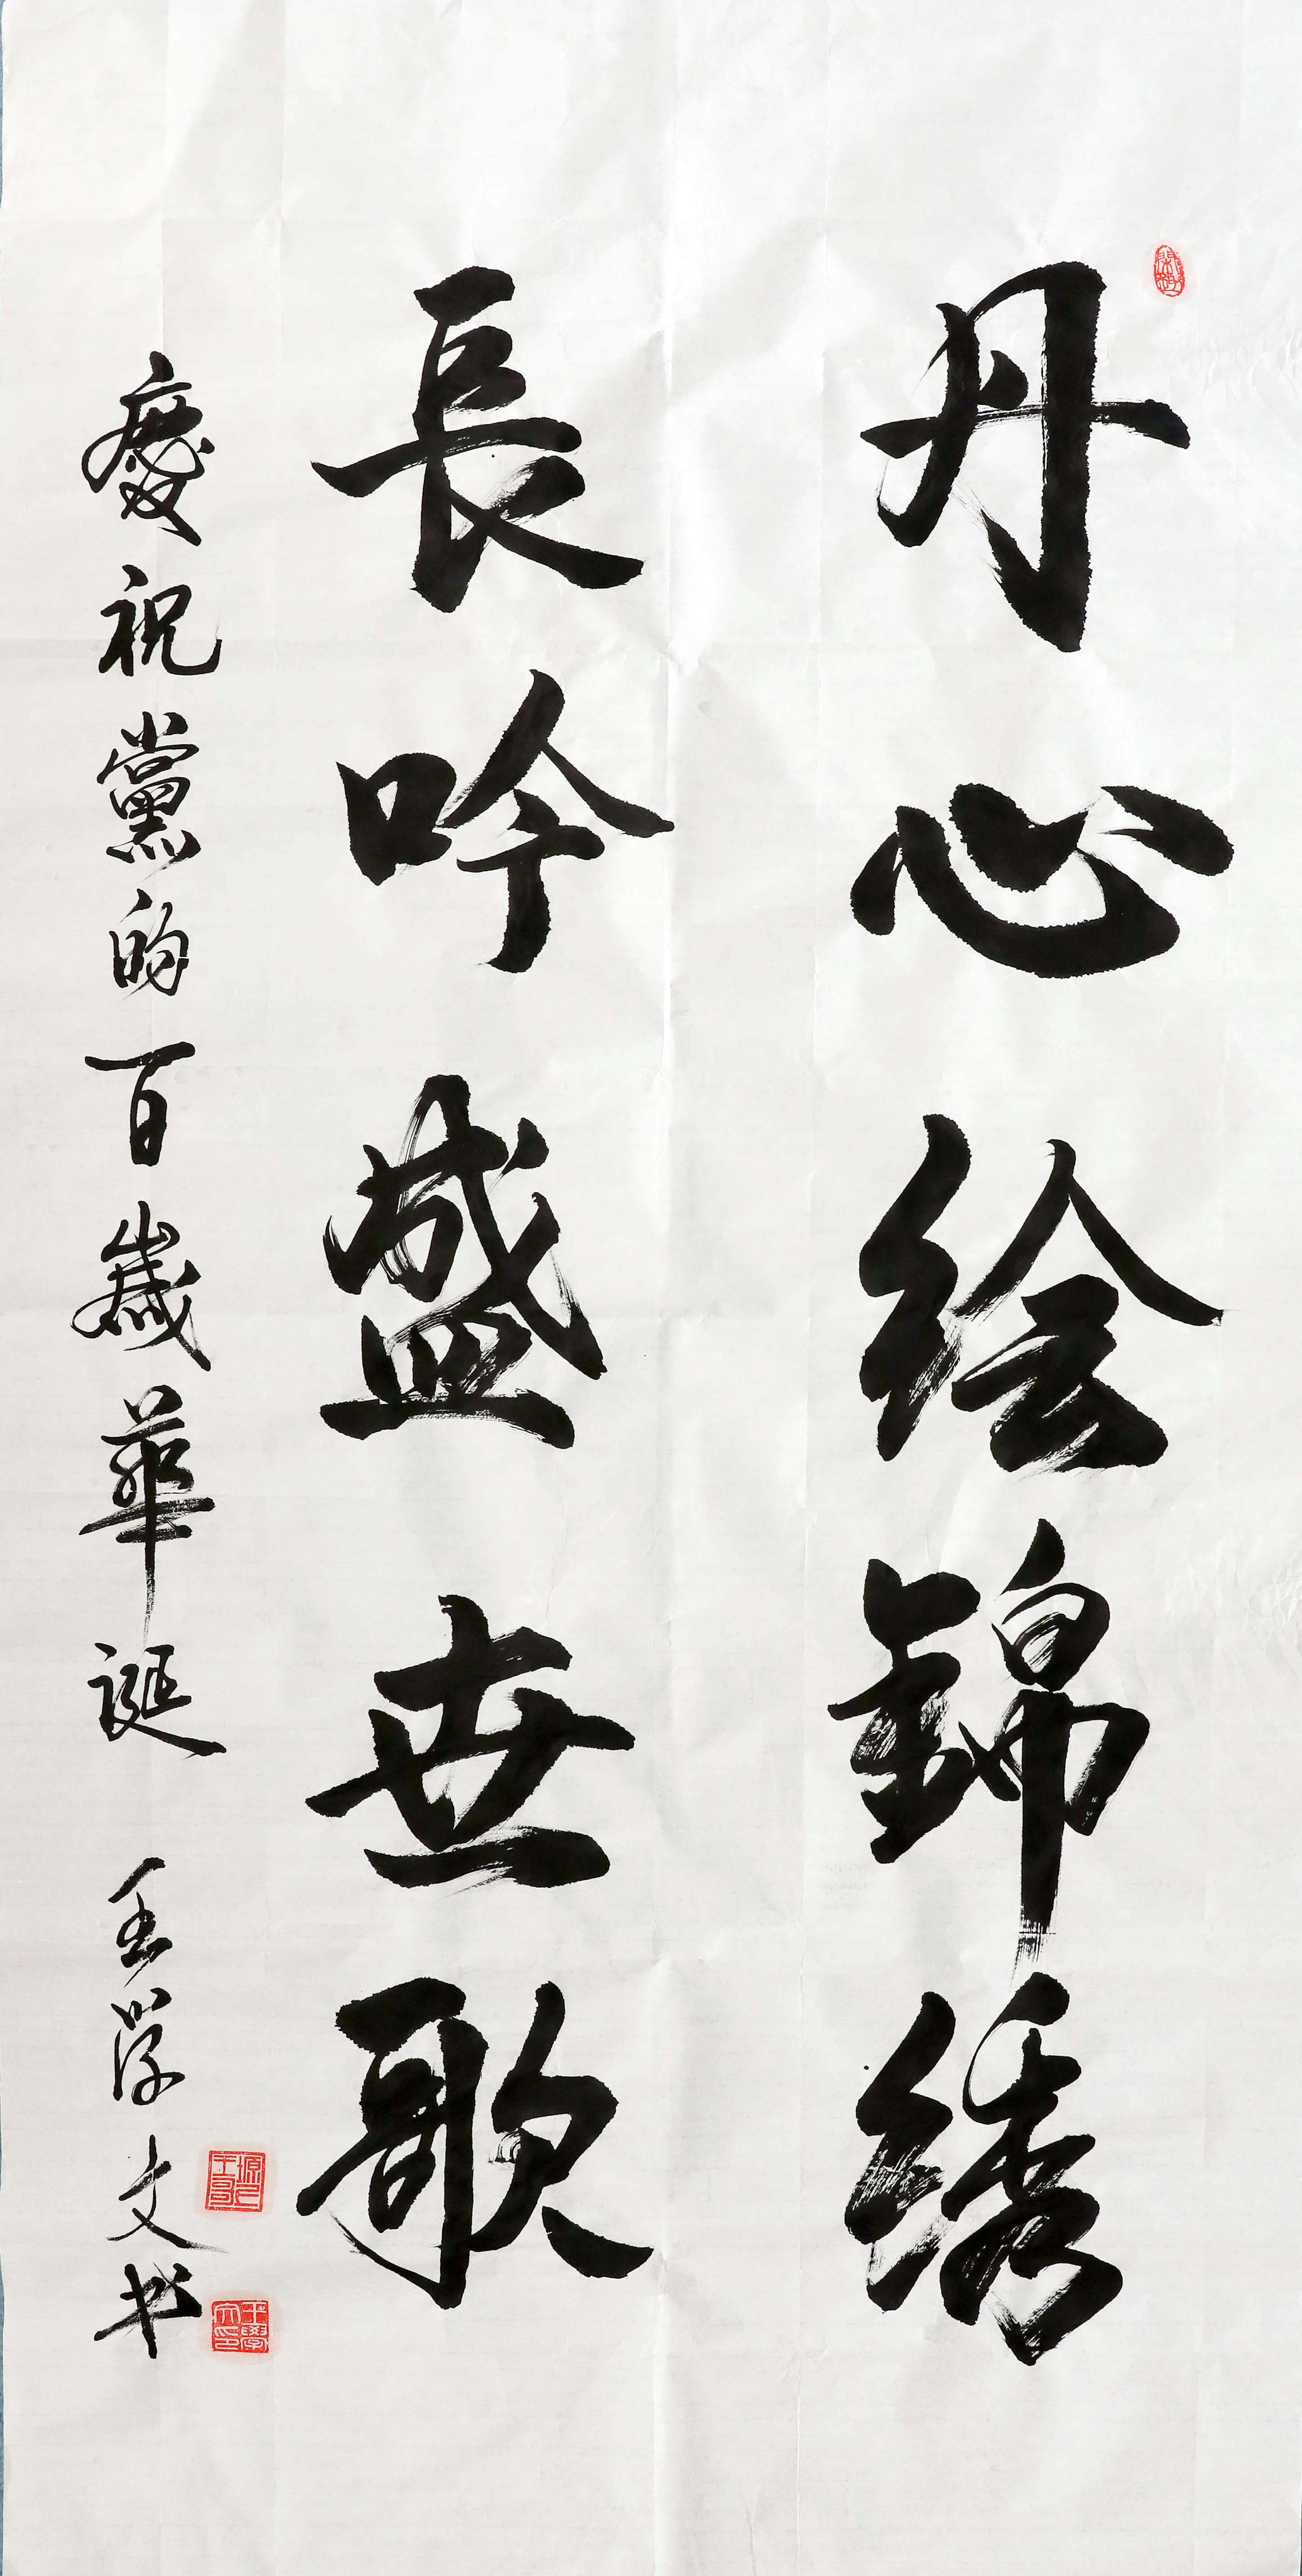 丹心绘錦绣
長吟盛世歌
慶祝黨的百歲華誕 王学文书